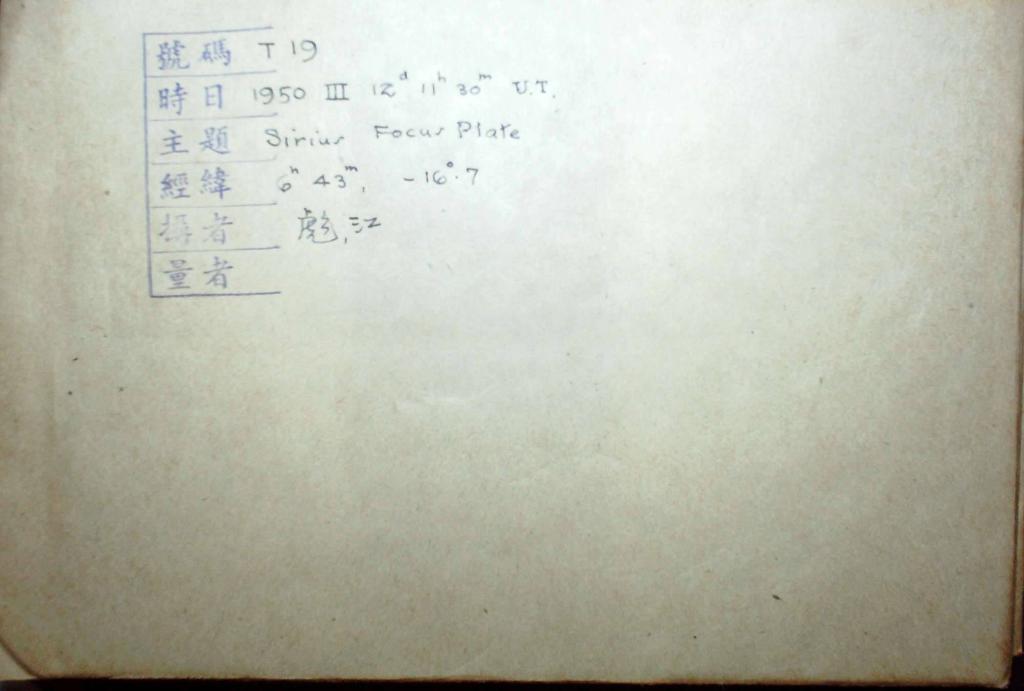 號碼 T 19
時日 1950 III 12ᵈ 11ʰ 30ᵐ U.T.
主題 Sirius Focus Plate
經緯 6ʰ 43ᵐ, -16°.7
攝者 彪, 江
量者